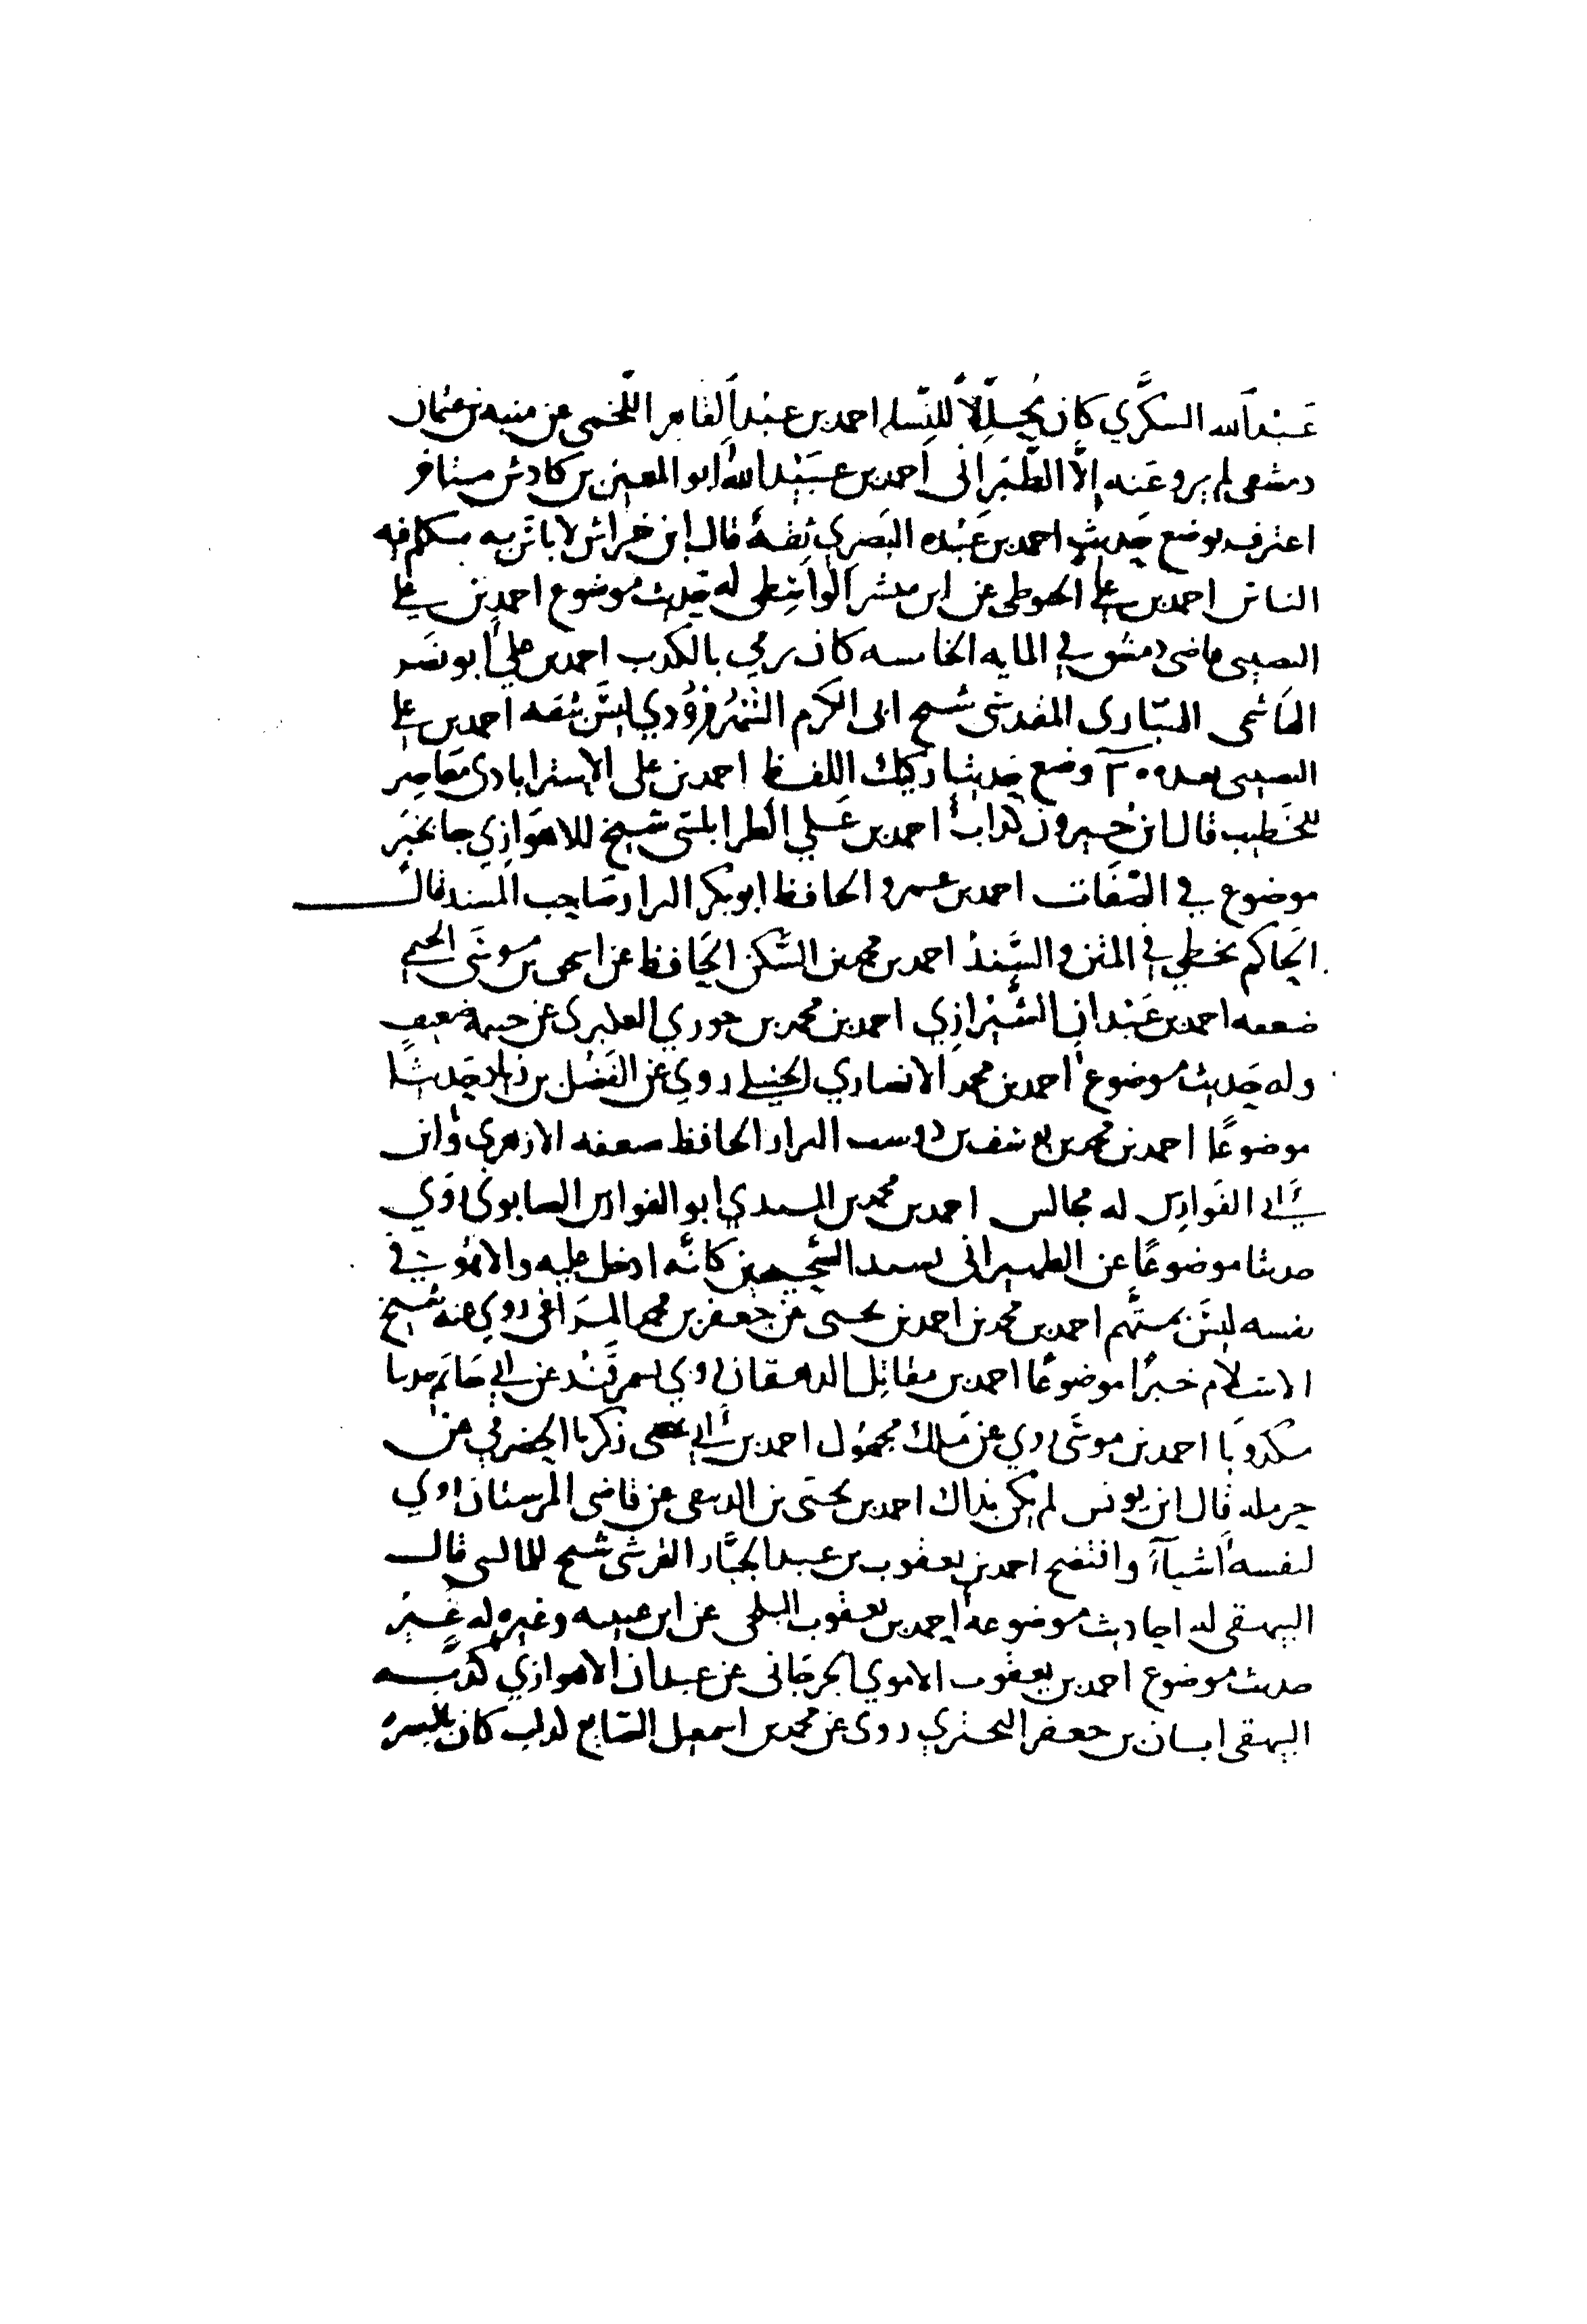 عَبْدالله السكَّري كان يُحلِّلاً للنّسا احمد بن عبْد القاهر اللّخمي عن منبه بن عثمان
دمشقى لم يرو عَنه إلّا الطّبَراني احمد بن عبَيْد الله ابو العز بن كادش متاخر
اعترف بوضع حديث احمد بن عَبْده البَصري ثِقهٌ قال ابن خراش لا باس به تكلم فيه
الناس احمد بن علي الحوطى عن ابن مبشر الواسِطى له حديث موضوع احمد بن علي
النصيبى قاضى دمشق في المايه الخامسه كان رمي بالكذب احمد بن علي ابو نصَر
الهَاشمى الهبّارى المقدسى شيخ ابى الكرم الشَهْرُزُوري ليْسَ بثقه احمد بن علي
النصيبى بعد وضع حديثا ركيك اللفظ احمد بن على الاسترابادى معَاصِر
للخَطيب قال ابن خيرون كذابٌ احمد بن عَلي الطرابلسى شيخ للاهوَازِي جا بخَبَر
موضوع في الصّفَات احمد بن عمرو الحافظ ابوبكر البزار صَاحب المسند قال
الحَاكم يخطي في المتن والسَّند احمد بن محمد بن السّكن الحَافظ عن اسحق بن موسَى
ضعفه احمد بن عَبْدان الشِّيْرازِي احمد بن محمد بن حوري العكبرى عن خيثمة ضعيف
وله حَديث موضوع احمد بن محمد الانصاري الحنبلي روي عن الفَضْل بن زياد حَديثا
موضوعًا احمد بن محمد بن يوسف بن دوست البزاز الحافظ ضعفه الازهري وابن
ابي الفَوارِس له مجالس احمد بن محمد بن السندي ابو الفوارس الصابوني روَي
حديثا موضوعًا عن الطهرانى بسند الصّحيحين كانّه ادخل عليه والا فهُو في
نفسه ليسَ بمتَّهم احمد بن محمد بن احمد بن يحيى عن جعفر بن محمد المَرَاغى روي عنه شيخ
الاسْلام خبرًا موضوعًا احمد بن مقاتِل الدهقان روي بسمرقَنْد عن ابي حَاتم حديثا
مكذوبًا احمد بن موسَى روي عن مَالك مجهُول احمد بن ابي يحيى زكريا الحضرمي عن
حرمله قال ابن يونس لم يكن بذاك احمد بن يحيَى بن عن قاضى المرستان روي
لنفسه اشياءَ وافتضح احمد بن يعقوب بن عبد الجبَّار القرشى شيخ للمالينى قال
البيهقى له احاديث موضوعه احمد بن يعقوب البلخى عن ابن عيينه وغيره له غَيْر
حديث موضوع احمد بن يعقوب الاموي الجرجَانى عن عبدان الاهوازي كذّبه
البيهقى ابان بن جعفر النجيرمي روى عن محمد بن اسمعيل الصّايغ كذاب كان بالبصره